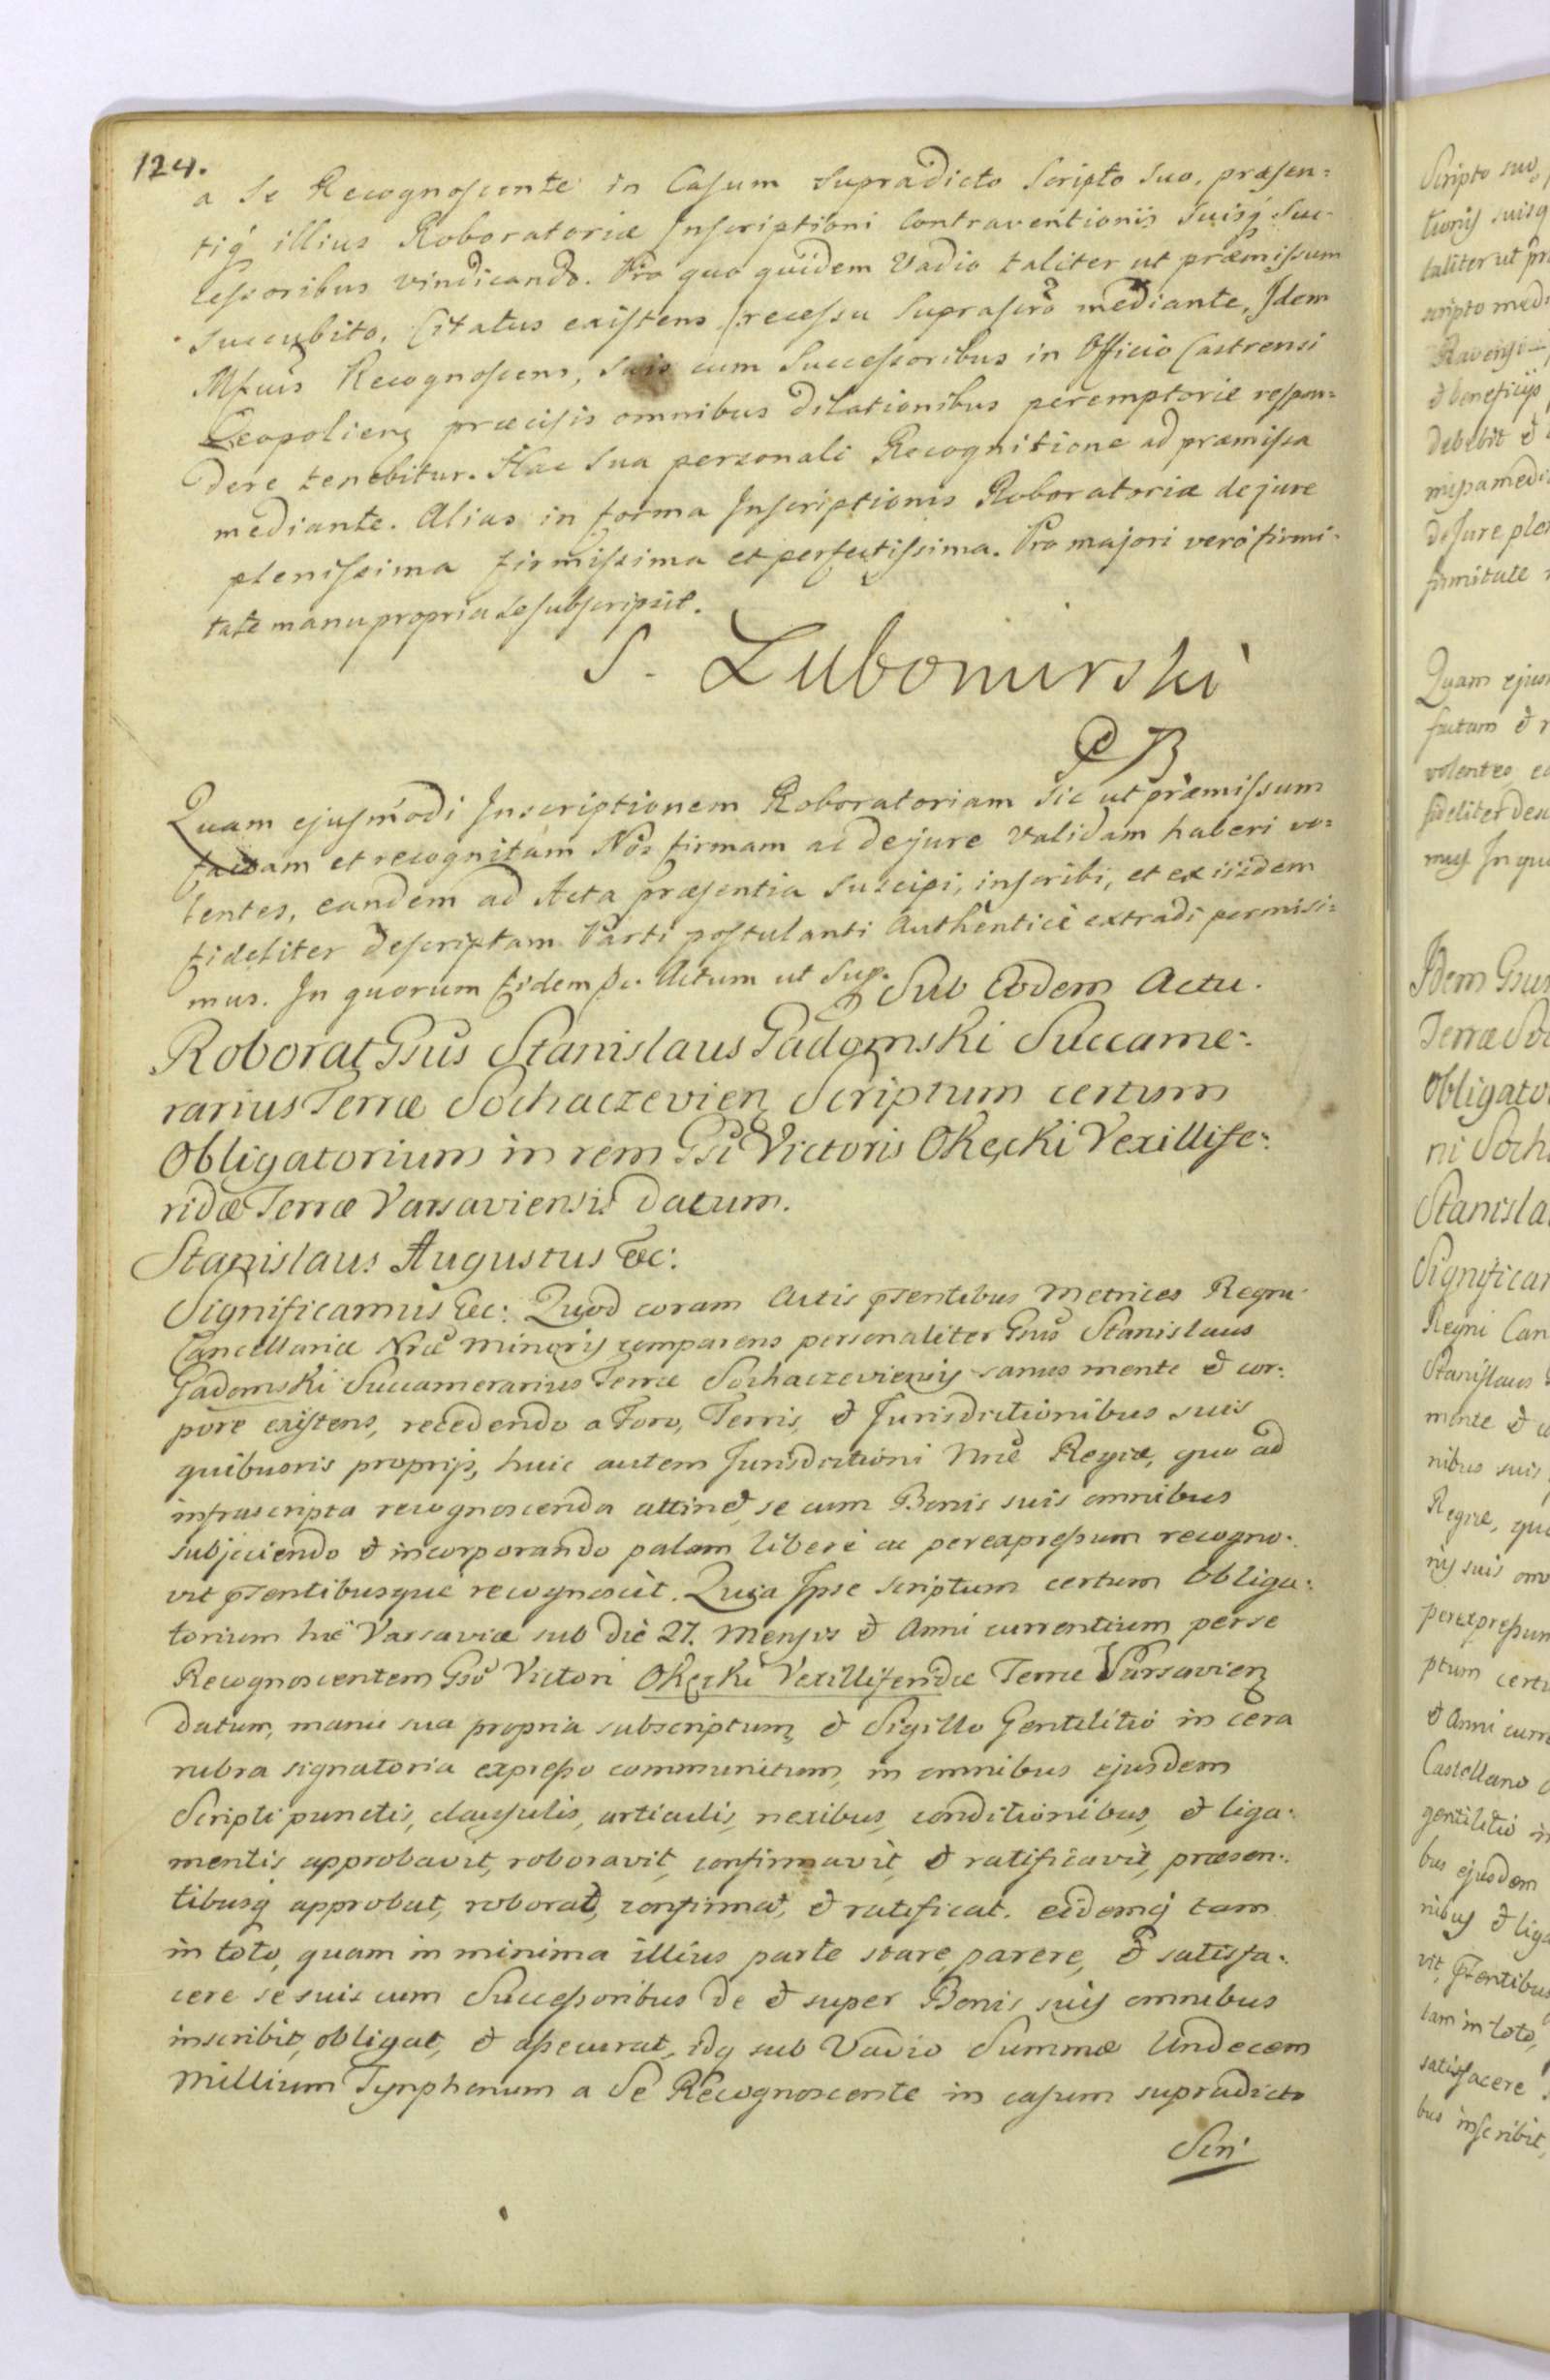 124.
a Se Recognoscente in Casum Supradicto Scripto Suo, præsen=
tiq́ illius Roboratoriæ Inscriptioni Contraventionis Suisq́ Suc-
cessoribus vindicando. Pro quo quidem Vadio taliter ut præmissum
succubito, Citatus existens processu Suprascro mediante, Idem
Mfcus Recognoscens, Suis cum Successoribus in Officio Castrensi
Leopolien præcisis omnibus dilationibus peremptorie respon=
dere tenebitur. Hac Sua personali Recognitione ad præmissa
mediante. Alias in forma Inscriptionis Roboratoriæ de jure
plenissima firmissima et perfectissima. Pro majori vero firmi=
tate manu propria se subscripsit.
S. Lubomirski
Quam ejusmodi Inscriptionem Roboratoriam Sic ut præmissum
factam et recognitam Nos firmam ac de jure validam haberi vo=
lentes, eandem ad Acta præsentia Suscipi, inscribi, et ex iisdem
fideliter descriptam Parti postulanti Authentice extradi permisi=
mus. In quorum fidem &c. Actum ut Sup.
Sub Eodem Actu.
Roborat Gsus Stanislaus Gadomski Succame=
rarius Terræ Sochaczevien Scriptum certum
Obligatorium in rem Gsi Victoris Okęcki Vexillife=
ridæ Terræ Varsaviensis datum.
Stanislaus Augustus &c:
Significamus &c: Quod coram Actis pñtentibus Metrices Regni
Cancellariæ Nræ Minoris comparens personaliter Gsus Stanislaus
Gadomski Succamerarius Terræ Sochaczeviensis sanus mente & cor=
pore existens, recedendo a Foro, Terris, & Jurisdictionibus suis
quibusvis proprijs, huic autem Jurisdictioni Nræ Regiæ, quo ad
infrascripta recognoscenda attinet, se cum Bonis suis omnibus
subjiciendo & incorporando palam libere ac per expressum recogno=
vit pñtentibusque recognoscit. Quia Ipse scriptum certum Obliga=
torium hic Varsaviæ sub die 27. Mensis & Anni currentium per se
Recognoscentem Gso Victori Okęcki Vexilliferidæ Terræ Varsavien
datum, manu sua propria subscriptum, & Sigillo Gentilitio in cera
rubra signatoria expresso communitum, in omnibus ejusdem
Scripti punctis, clausulis, articulis, nexibus, conditionibus, & liga=
mentis approbavit, roboravit, confirmavit, & ratificavit, præsen=
tibusq́ approbat, roborat, confirmat, & ratificat. eidemq́ tam
in toto, quam in minima illius parte stare, parere, & satisfa=
cere se suis cum Successoribus de & super Bonis suis omnibus
inscribit, obligat, & assecurat, idq sub Vadio Summæ Undecem
Millium Tynphonum a Se Recognoscente in casum supradicto
Scri
Scripto suo,
tionis suisq
taliter ut præ
scripto medi
& beneficijs
debebit &
missa medi
de Jure ple
firmitate
Quam ejus
factam & r
volentes ea
fideliter des
mus. In quo
Idem Gsus
Terræ So
Obligato
ni Soch
Stanisla
Significam
Regni Can
Stanislaus
mente & c
nibus suis
Regiæ, quo
nis suis om
per expressum
ptum certu
& Anni curre
Castellano
gentilitio in
bus ejusdem
nibus & liga
vit, pñtentibus
tam in toto,
satisfacere
bus inscribit,